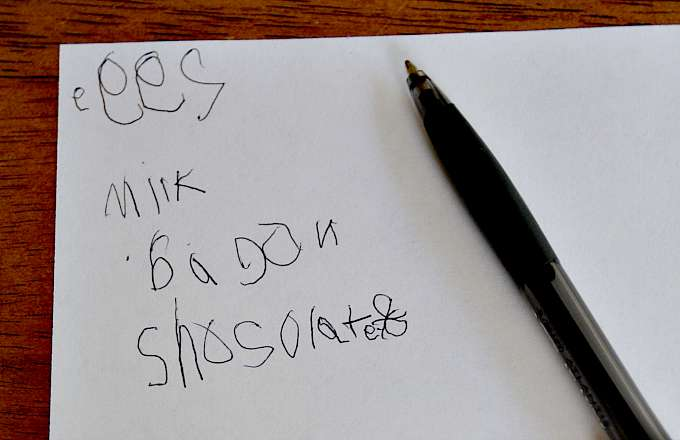 eggs
Milk
Bacon
shosolate